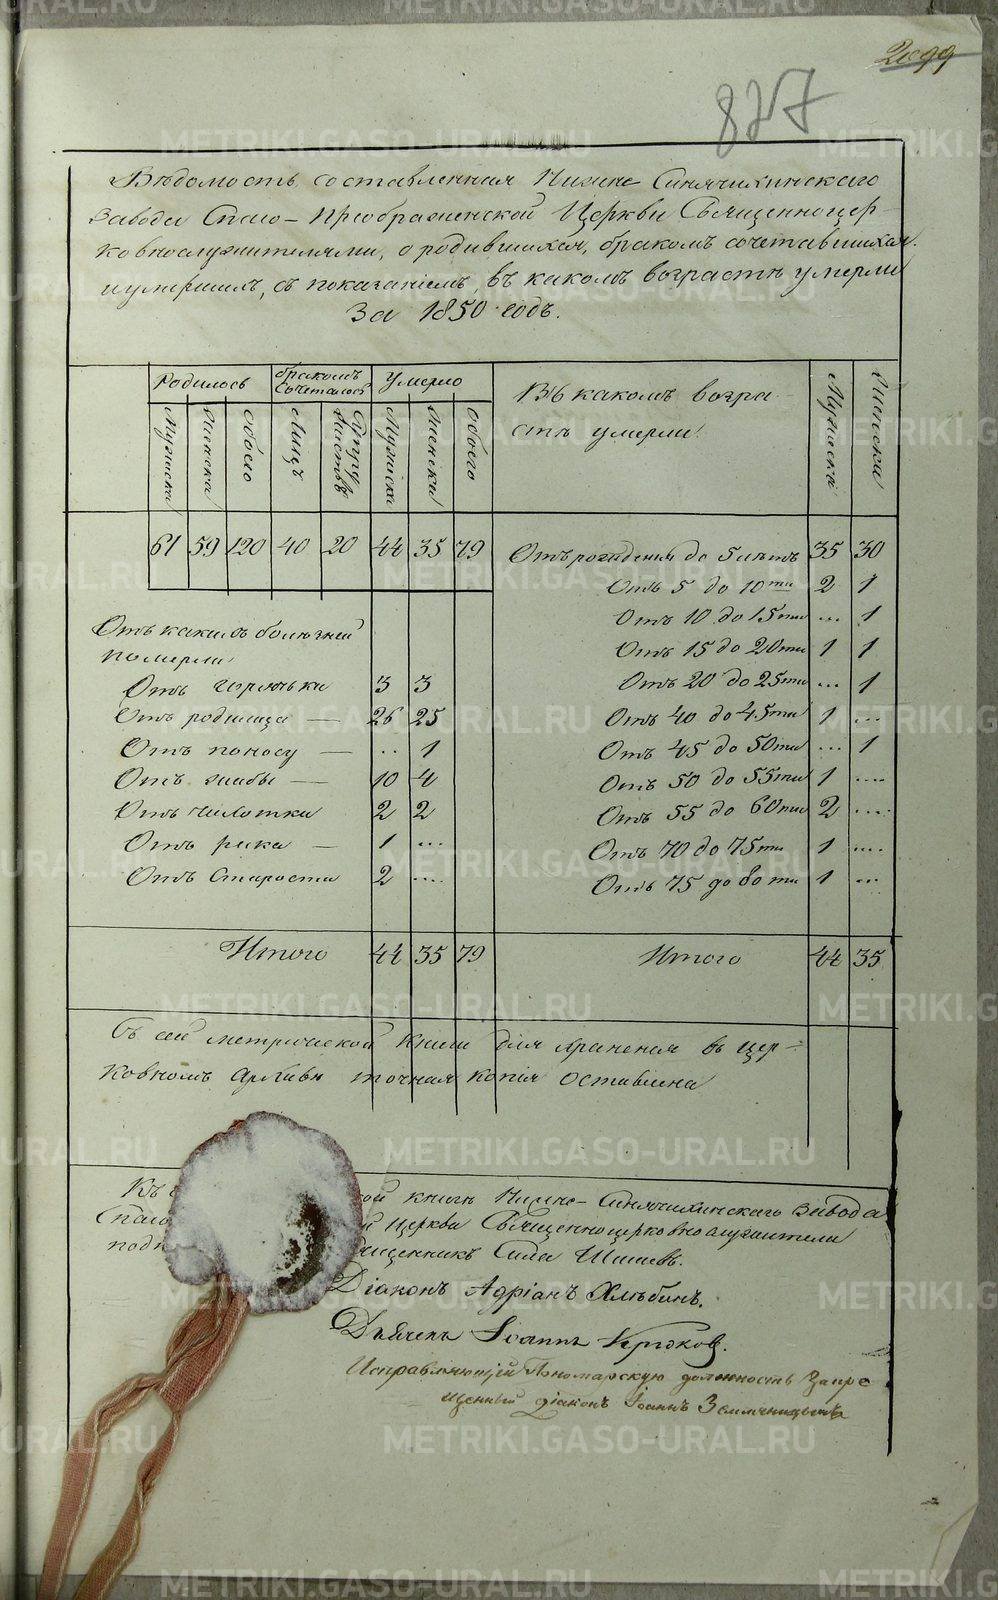 827
Вѣдомость, составленная Нижне-Синячихинскаго
завода Спасо-Преображенской Церкви Священноцер-
ковнослужителями, о родившихся, бракомъ сочетавшихся
и умершихъ, съ показаніемъ, въ какомъ возрастѣ умерли
За 1850 годъ.
Родилось | бракомъ сочеталось | Умерло | Въ какомъ возра- | Мужска | Женска
Мужска | Женска | обоего | Лицъ | Супру жествъ | Мужска | Женска | Обоего | стѣ умерли.
61 | 59 | 120 | 40 | 20 | 44 | 35 | 79 | Отъ рожденія до 5 лѣтъ | 35 | 30
Отъ 5 до 10ти | 2 | 1
Отъ какихъ болѣзней | Отъ 10 до 15ти | ... | 1
померли | Отъ 15 до 20ти | 1 | 1
Отъ горячьки | 3 | 3 | Отъ 20 до 25ти | ... | 1
Отъ родимца — | 26 | 25 | Отъ 40 до 45ти | 1 | ...
Отъ поносу — | ... | 1 | Отъ 45 до 50ти | ... | 1
Отъ жабы — | 10 | 4 | Отъ 50 до 55ти | 1 | ....
Отъ чихотки | 2 | 2 | Отъ 55 до 60ти | 2 | ....
Отъ рака — | 1 | ... | Отъ 70 до 75ти | 1 | ....
Отъ Старости | 2 | .... | Отъ 75 до 80ти | 1 | ...
Итого | 44 | 35 | 79 | Итого | 44 | 35
Съ сей метрической книги для храненія въ цер-
ковномъ архивѣ точная копія оставлена
Къ книгѣ Нижне-Синячихинскаго завода
Церкви Священноцерковнослужители
Сила
Діаконъ Адріанъ Хлѣбинъ.
Дьячекъ Іоаннъ Крюковъ.
Исправляющій Пономарскую должность Запре
щенный діаконъ Іоаннъ Земляницынъ
METRIKI.GASO-URAL.RU